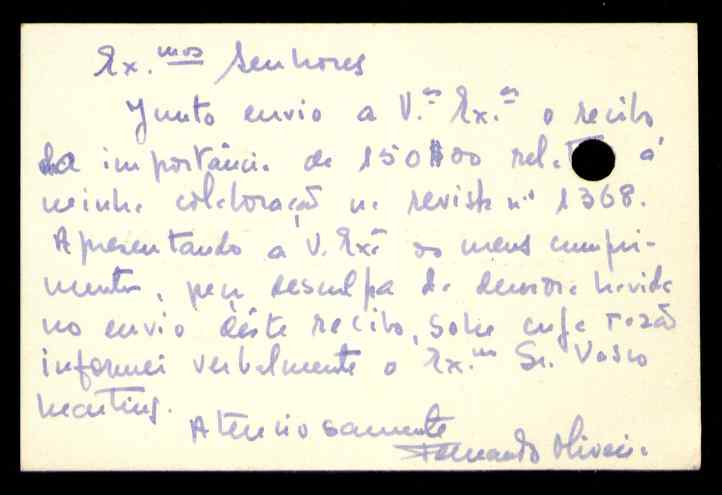 Ex.mos Senhores
Junto envio a V.as Ex.as o recibo
da importância de 150$00 relat à
minha colaboração na revista nº 1368.
Apresentando a V. Exas os meus cumpri-
mentos, peço desculpa da demora havida
no envio dêste recibo, sobre cuja razão
informei verbalmente o Ex.mo Sr. Vasco
Martins.
Atenciosamente
Fernando Oliveira